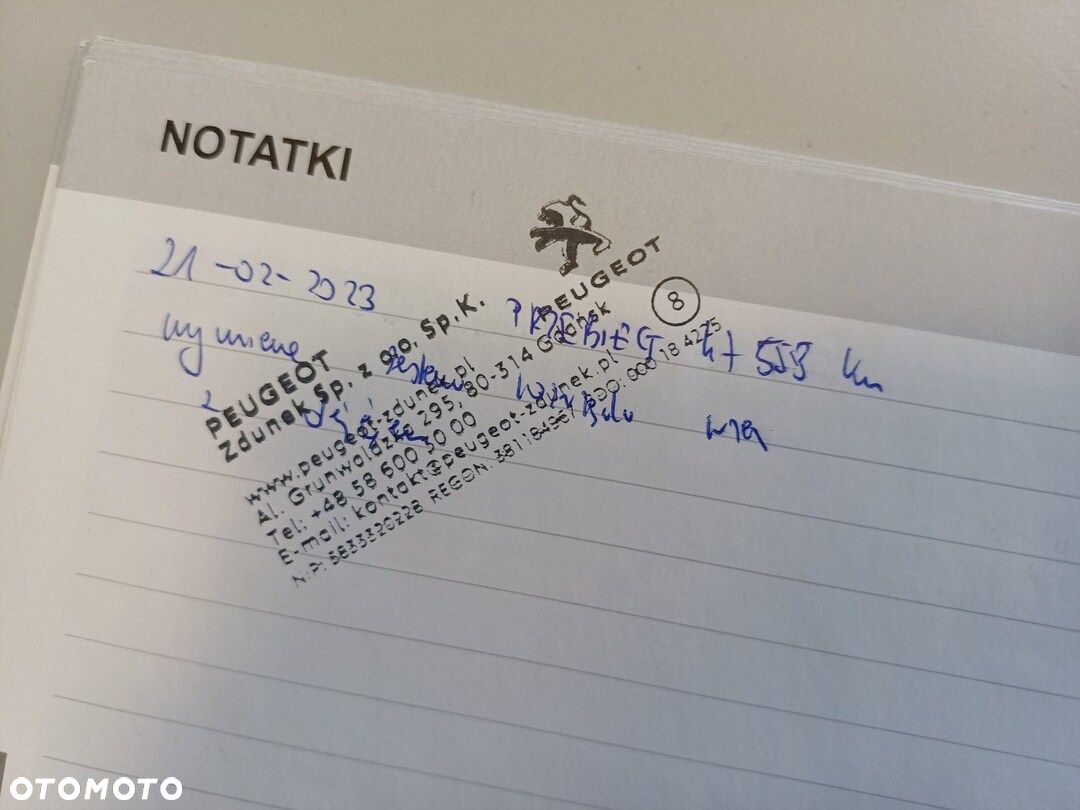 NOTATKI
21-02-2023
PRZEBIEG 47 553 km
wymiana zestaw rozrządu wraz
z
PEUGEOT
8
PEUGEOT
Zdunek Sp. z o.o. Sp.K.
www.peugeot-zdunek.pl
Al. Grunwaldzka 295, 80-314 Gdańsk
Tel: +48 58 600 50 00
E-mail: kontakt@peugeot-zdunek.pl
NIP: 5833320228 REGON: 381184967 BDO: 000 18 4225
OTOMOTO